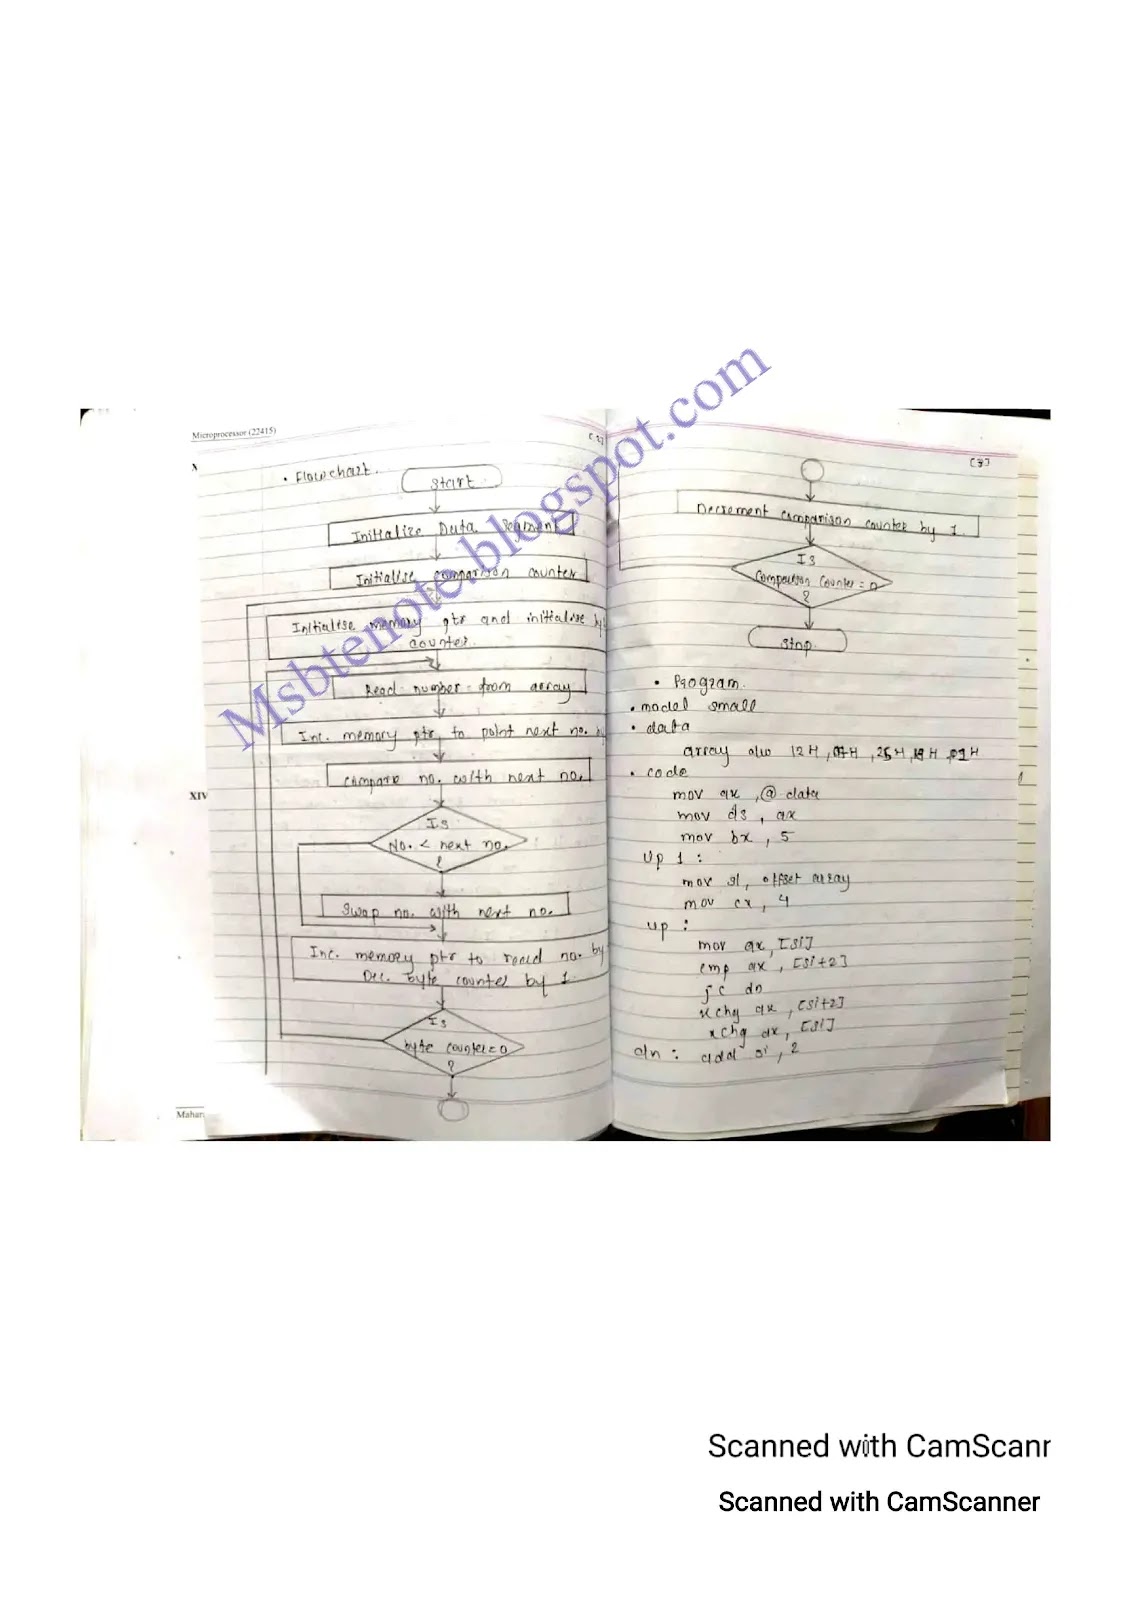 Microprocessor (22415)
[2]
X
• Flowchart.
Start
Initialize Data Segment
Initialise comparison counter
Initialise memory ptr and initialise by
counter.
Read number from array
Inc. memory ptr to point next no. by
compare no. with next no.
Is
No. < next no.
?
Swap no. with next no.
Inc. memory ptr to read no. by
Dec. byte counter by 1.
Is
byte counter = 0
?
XIV
Mahar
[3]
Decrement comparison counter by 1.
Is
Comparison Counter = 0
?
Stop.
• Program.
• model small
• data
array dw 12H,
• code
mov ax , @ data
mov ds , ax
mov bx , 5
Up 1 :
mov si, offset array
mov cx , 4
up :
mov ax, [si]
cmp ax , [si+2]
jc dn
xchg ax , [si+2]
xchg ax, [si]
dn : add si , 2
Msbtenote.blogspot.com
Scanned with CamScanr
Scanned with CamScanner